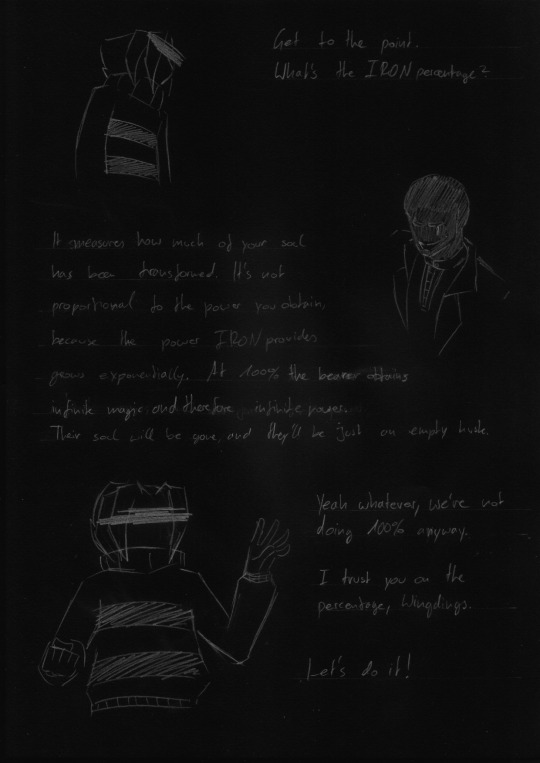 Get to the point.
What's the IRON percentage?
It measures how much of your soul
has been transformed. It's not
proportional to the power you obtain,
because the power IRON provides
grows exponentially. At 100% the bearer obtains
infinite magic, and therefore, infinite power.
Their soul will be gone, and they'll be just an empty husk.
Yeah whatever, we're not
doing 100% anyway.
I trust you on the
percentage, Wingdings.
Let's do it!